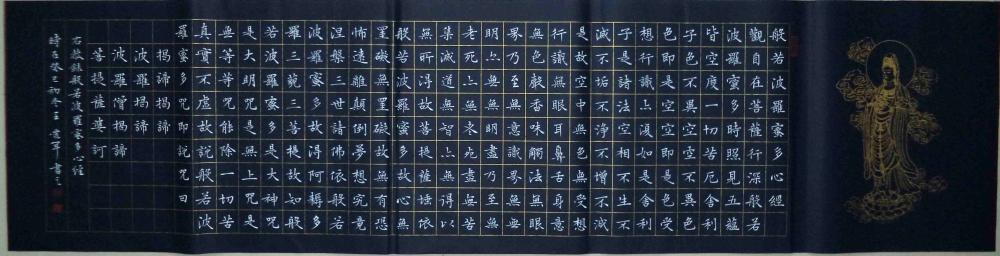 般若波羅蜜多心經
觀自在菩薩行深般若
波羅蜜多時照見五蘊
皆空度一切苦厄舍利
子色不異空空不異色
色即是空空即是色受
想行識亦復如是舍利
子是諸法空相不生不
滅不垢不淨不增不減
是故空中無色無受想
行識無眼耳鼻舌身意
無色聲香味觸法無眼
界乃至無意識界無無
明亦無無明盡乃至無
老死亦無老死盡無苦
集滅道無智亦無得以
無所得故菩提薩埵依
般若波羅蜜多故心無
罣礙無罣礙故無有恐
怖遠離顛倒夢想究竟
涅槃三世諸佛依般若
波羅蜜多故得阿耨多
羅三藐三菩提故知般
若波羅蜜多是大神咒
是大明咒是無上咒是
無等等咒能除一切苦
真實不虛故說般若波
羅蜜多咒即說咒曰
揭諦揭諦
波羅揭諦
波羅僧揭諦
菩提薩婆訶
右敬錄般若波羅蜜多心經
時在癸巳初冬王軍書之